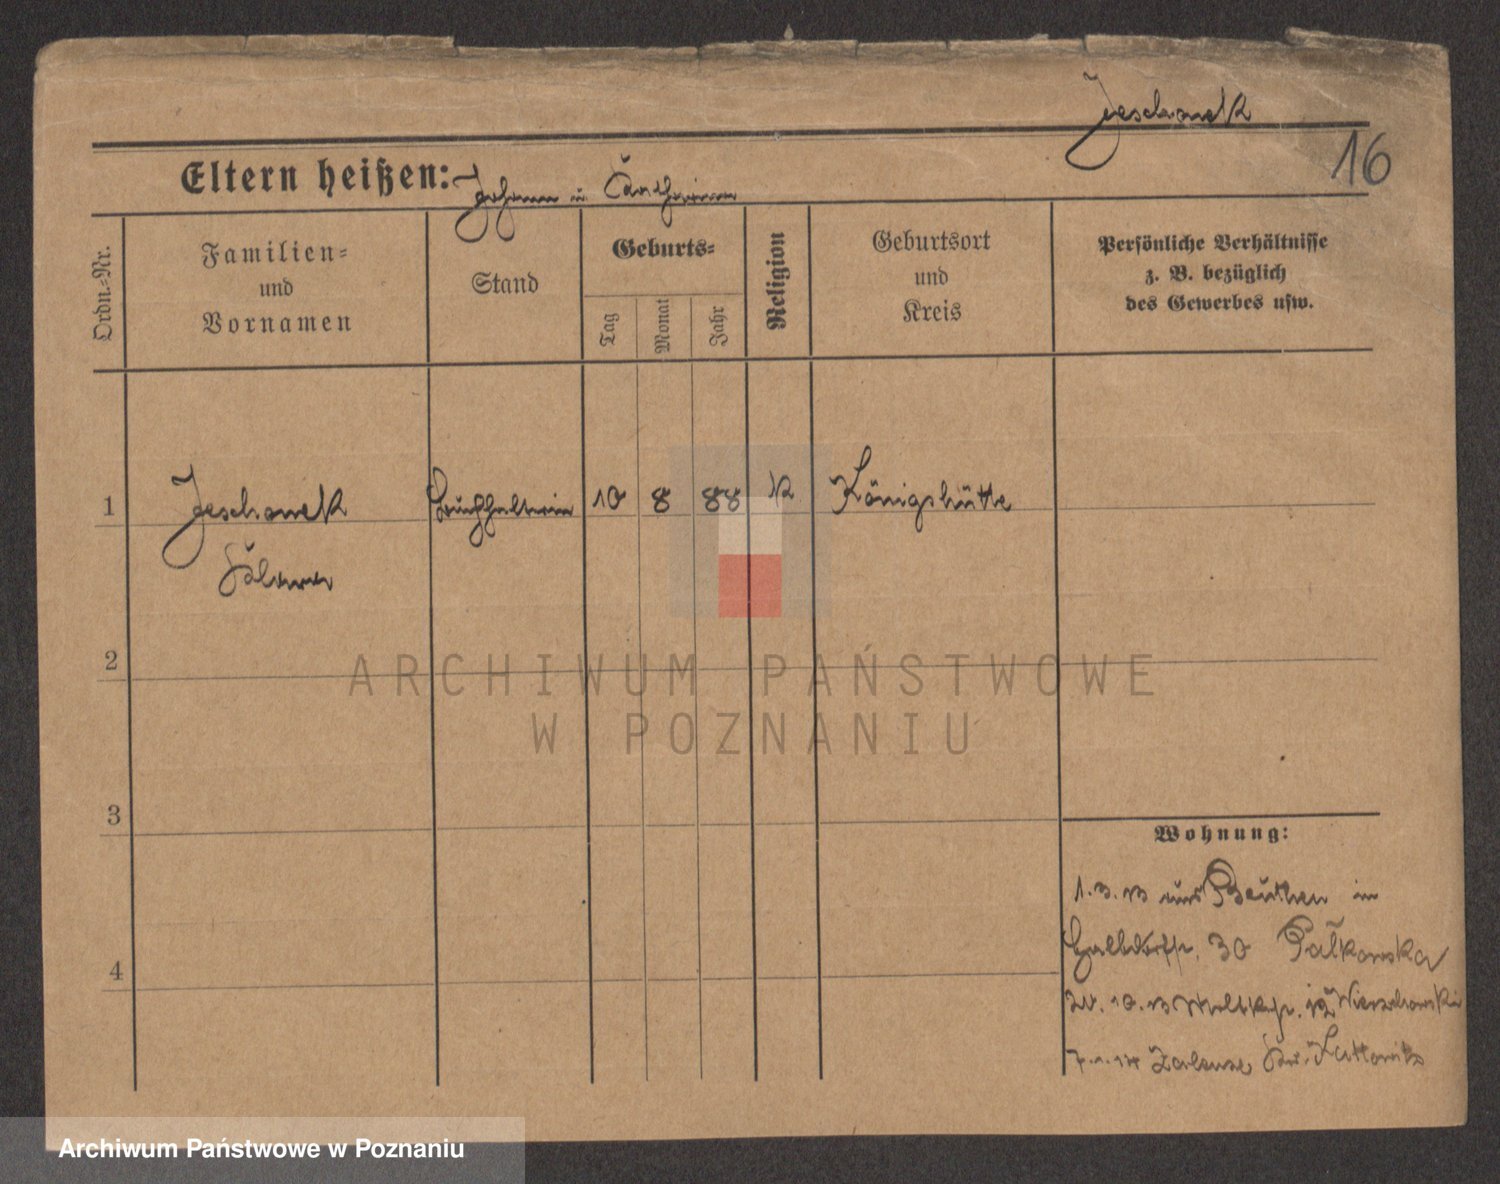 Jeschonek
16
Eltern heißen: Johann u.
Ordn.-Nr.
Familien-
und
Vornamen
Stand
Geburts-
Tag
Monat
Jahr
Religion
Geburtsort
und
Kreis
Persönliche Verhältnisse
z. B. bezüglich
des Gewerbes usw.
1 Jeschonek Buchhalterin 10 8 88 K Königshütte
2
3
4
Wohnung:
1.3.13 aus Beuthen in
30
12 Wierzchowski
7.1.14 Zalenze Kattowitz
ARCHIWUM PAŃSTWOWE
W POZNANIU
Archiwum Państwowe w Poznaniu